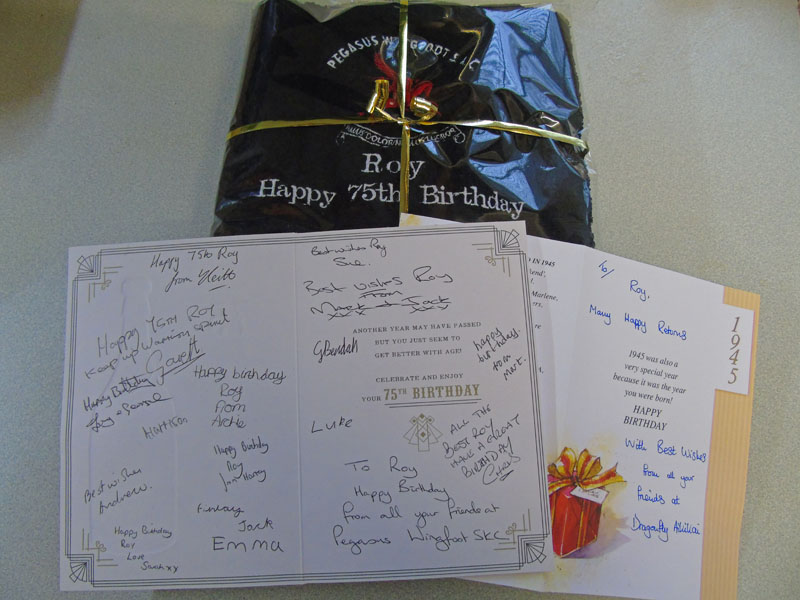 PEGASUS
Roy
Happy 75th Birthday
Happy 75th Roy
from Keith
Happy 75TH Roy
Keep up Warrior spirit
Gareth
Happy Birthday
Happy birthday
Roy
From
Best wishes
Andrew.
Happy Birthday
Roy
from Harvey
Finlay
Jack
EMMA
Happy Birthday
Roy
Love
Sarah xx
Best wishes Roy
Sue.
Best wishes Roy
From
Mark + Jack
xxx xxx
ANOTHER YEAR MAY HAVE PASSED
BUT YOU JUST SEEM TO
GET BETTER WITH AGE!
CELEBRATE AND ENJOY
YOUR 75TH BIRTHDAY
happy
birthday.
from
Matt.
LUKE
ALL THE
BEST ROY
HAVE A GREAT
BIRTHDAY
To Roy
Happy Birthday
from all your friends at
Pegasus Wingfoot SKC
IN 1945
Marlene.
1945
To/
Roy,
Many Happy Returns
1945 was also a
very special year
because it was the year
you were born!
HAPPY
BIRTHDAY
With Best Wishes
from all your
friends at
Dragonfly